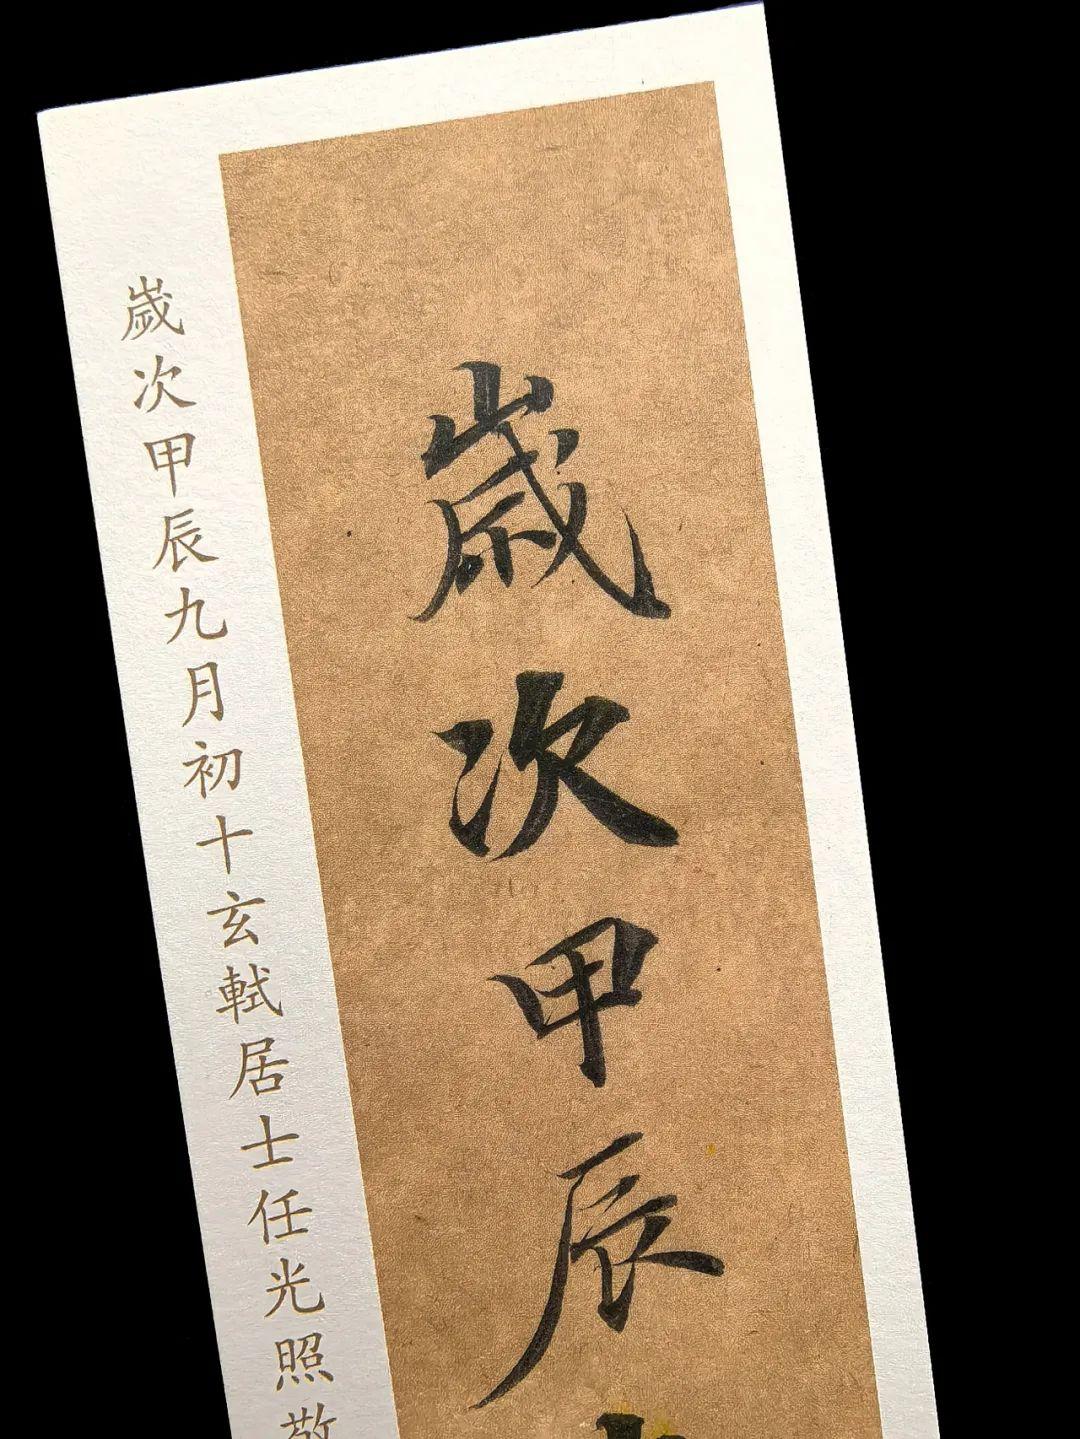 歲次甲辰
歲次甲辰九月初十玄軾居士任光照敬